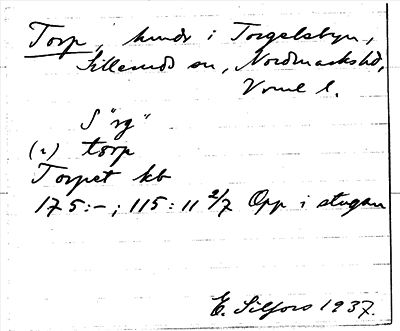 Torp, hmdr i Torgelsbyn,
Silleruds sn, Nordmarks hd,
Vrml l.
S "rg"
(.) torp
Torpet kb
175:-; 115:11 2/7 Opp i stugan
E. Silfors 1937.